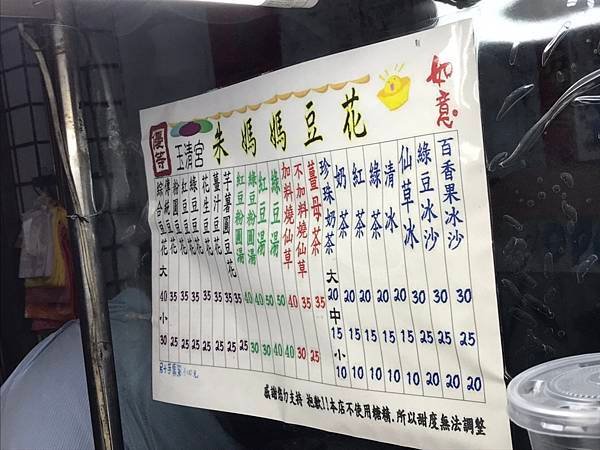 優等
玉清宮
朱媽媽豆花
如意
綜合豆花
傳統豆花
粉圓豆花
紅豆豆花
綠豆豆花
花生豆花
薑汁豆花
芋薯圓豆花
紅豆粉圓湯
綠豆粉圓湯
紅豆湯
綠豆湯
加料燒仙草
不加料燒仙草
薑母茶
珍珠奶茶
奶茶
紅茶
綠茶
清冰
仙草冰
綠豆冰沙
百香果冰沙
大 40 35 35 35 35 35 35 35 40 40 50 50 40 35 35
小 30 25 25 25 25 25 25 25 30 30 40 40 30 25
大 20 20 20 20 20 30 30 30
中 15 15 15 15 15 25 25 25
小 10 10 10 10 10 20 20 20
感謝您的支持 抱歉!!本店不使用糖精.所以甜度無法調整